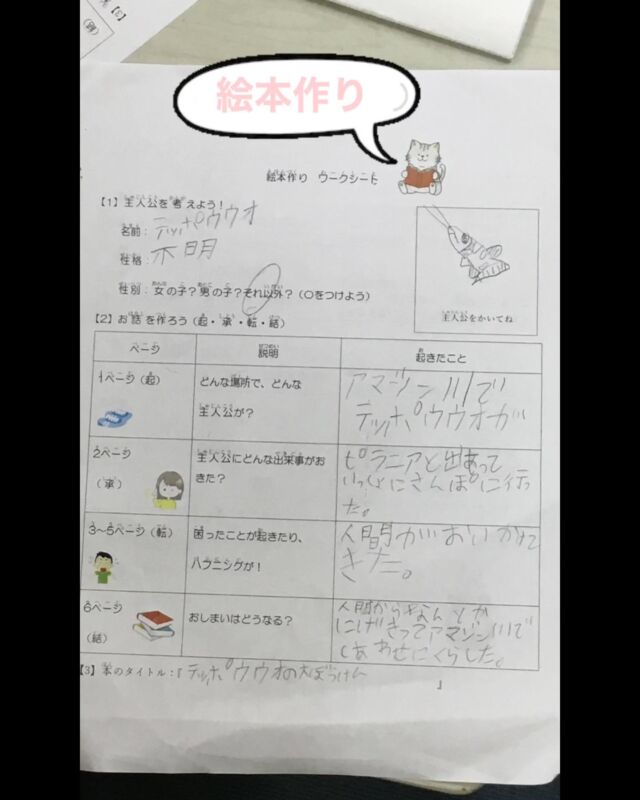 【3】
(結)
絵本作り
絵本作り ワークシート
【1】主人公を考えよう！
名前: テッポウウオ
性格: 不明
性別: 女の子？男の子？それ以外？（○をつけよう）
主人公をかいてね
【2】お話を作ろう（起・承・転・結）
ページ 説明 起きたこと
1ページ（起） どんな場所で、どんな主人公が？ アマゾン川で
テッポウウオが
2ページ（承） 主人公にどんな出来事がおきた？ ピラニアと出あって
いっしょにさんぽに行っ
た。
3～5ページ（転） 困ったことが起きたり、ハプニングが！ 人間がおいかけて
きた。
6ページ（結） おしまいはどうなる？ 人間からなんとか
にげきってアマゾン川で
しあわせにくらした。
【3】本のタイトル：『テッポウウオの大ぼうけん
』